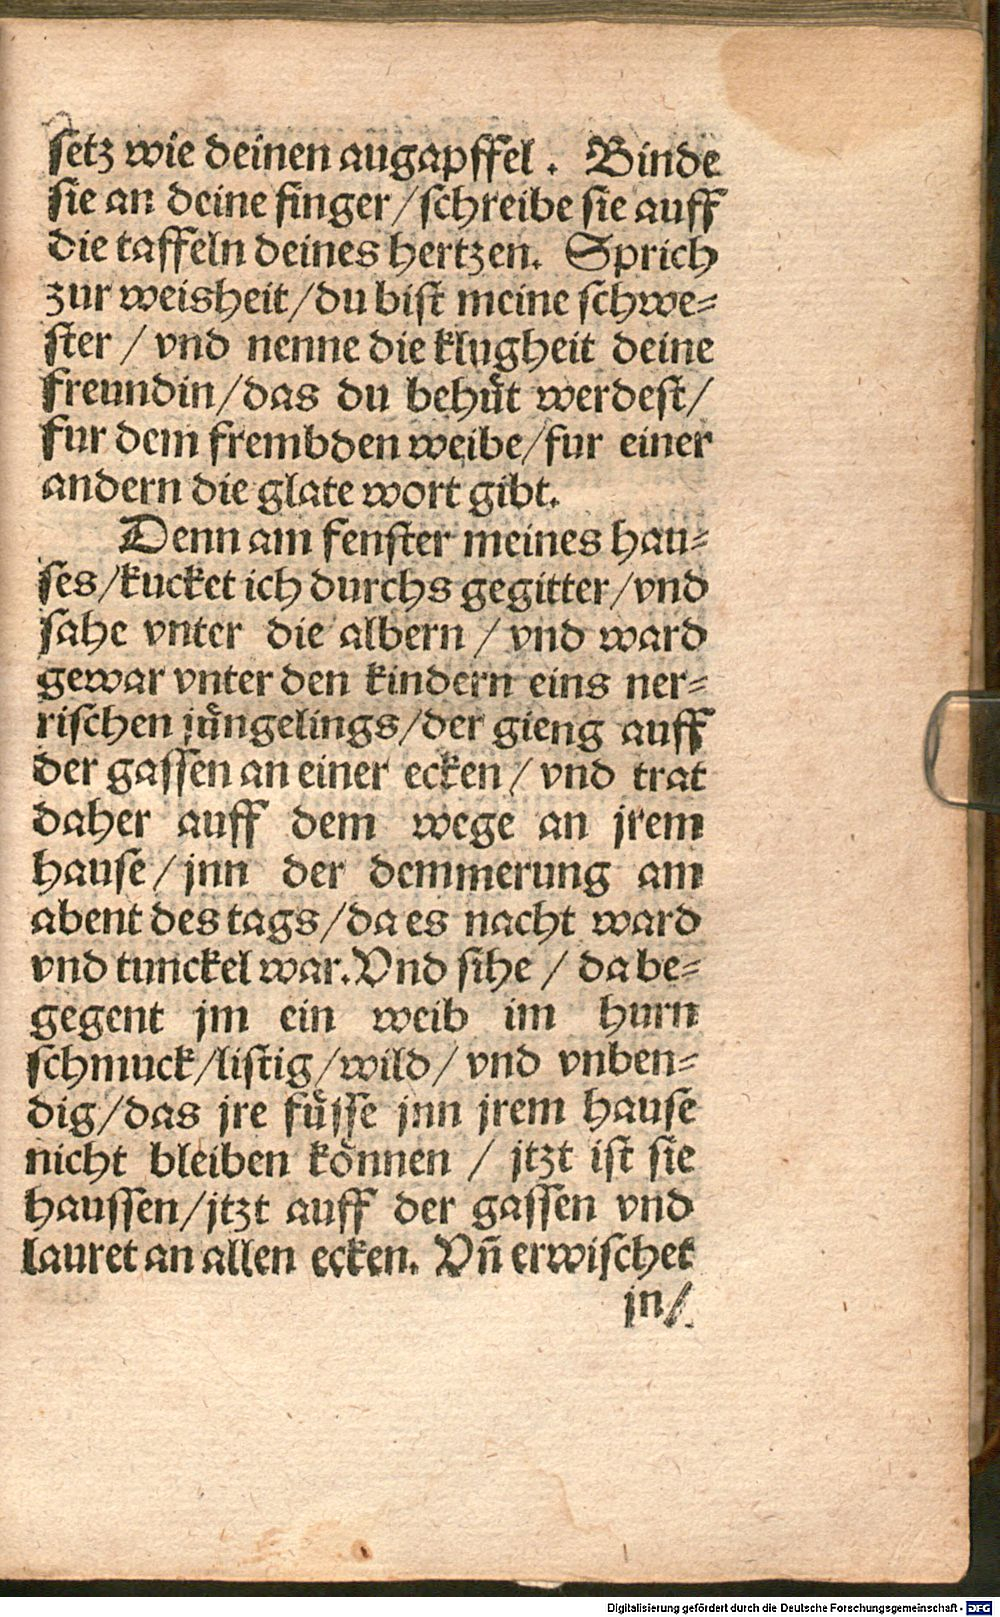 setz wie deinen augapffel. Binde
sie an deine finger/schreibe sie auff
die taffeln deines hertzen. Sprich
zur weisheit/du bist meine schwe=
ster / vnd nenne die klugheit deine
freundin/das du behuͤt werdest/
fur dem frembden weibe/fur einer
andern die glate wort gibt.
Denn am fenster meines hau=
ses/kucket ich durchs gegitter/vnd
sahe vnter die albern / vnd ward
gewar vnter den kindern eins ner=
rischen juͤngelings/der gieng auff
der gassen an einer ecken / vnd trat
daher auff dem wege an jrem
hause/jnn der demmerung am
abent des tags/da es nacht ward
vnd tunckel war. Vnd sihe / da be=
gegent jm ein weib im hurn
schmuck/listig/wild/ vnd vnben=
dig/das jre fuͤsse jnn jrem hause
nicht bleiben koͤnnen / jtzt ist sie
haussen/jtzt auff der gassen vnd
lauret an allen ecken. Vñ erwischet
jn/
Digitalisierung gefördert durch die Deutsche Forschungsgemeinschaft - DFG